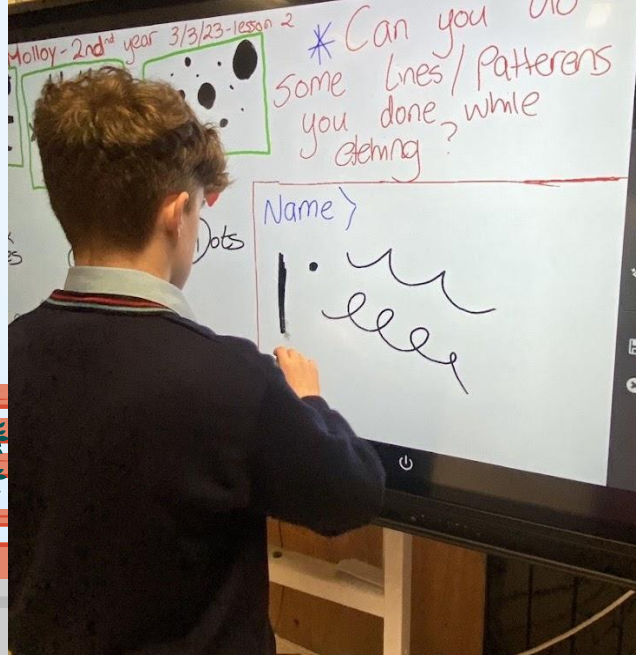 Molloy - 2nd nd year 3/3/23 - lesson 2
* Can you do
some lines/Patterens
you done, while
etching?
Name >
Dots